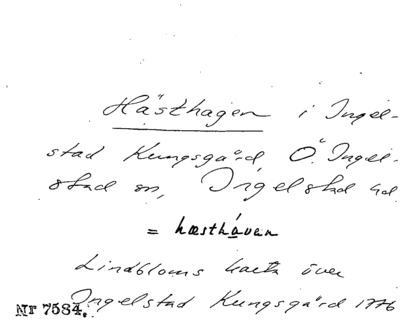 Hästhagen i Ingel-
stad Kungsgård Ö. Ingel-
stad sn, Ingelstad hd.
= hæsthá
Lindbloms karta över
Nr 7584. Ingelstad Kungsgård 1776